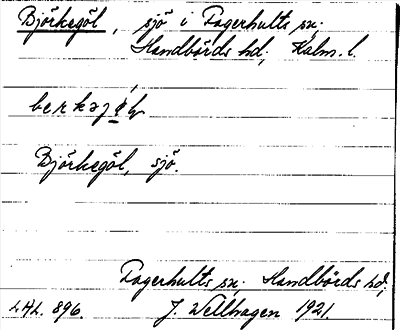 Björkegöl, sjö i Fagerhults sn;
Handbörds hd; Kalm. l.
Björkegöl, sjö.
Fagerhults sn; Handbörds hd;
LHL. 896. J. Wellhagen 1921.